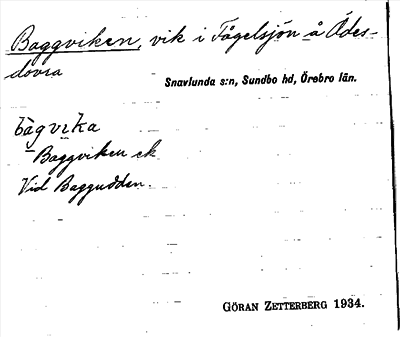 Baggviken, vik i Fågelsjön å Ödes-
dovra
Snavlunda s:n, Sundbo hd, Örebro län.
bàgvika
Baggviken ek
Vid Baggudden.
GÖRAN ZETTERBERG 1934.